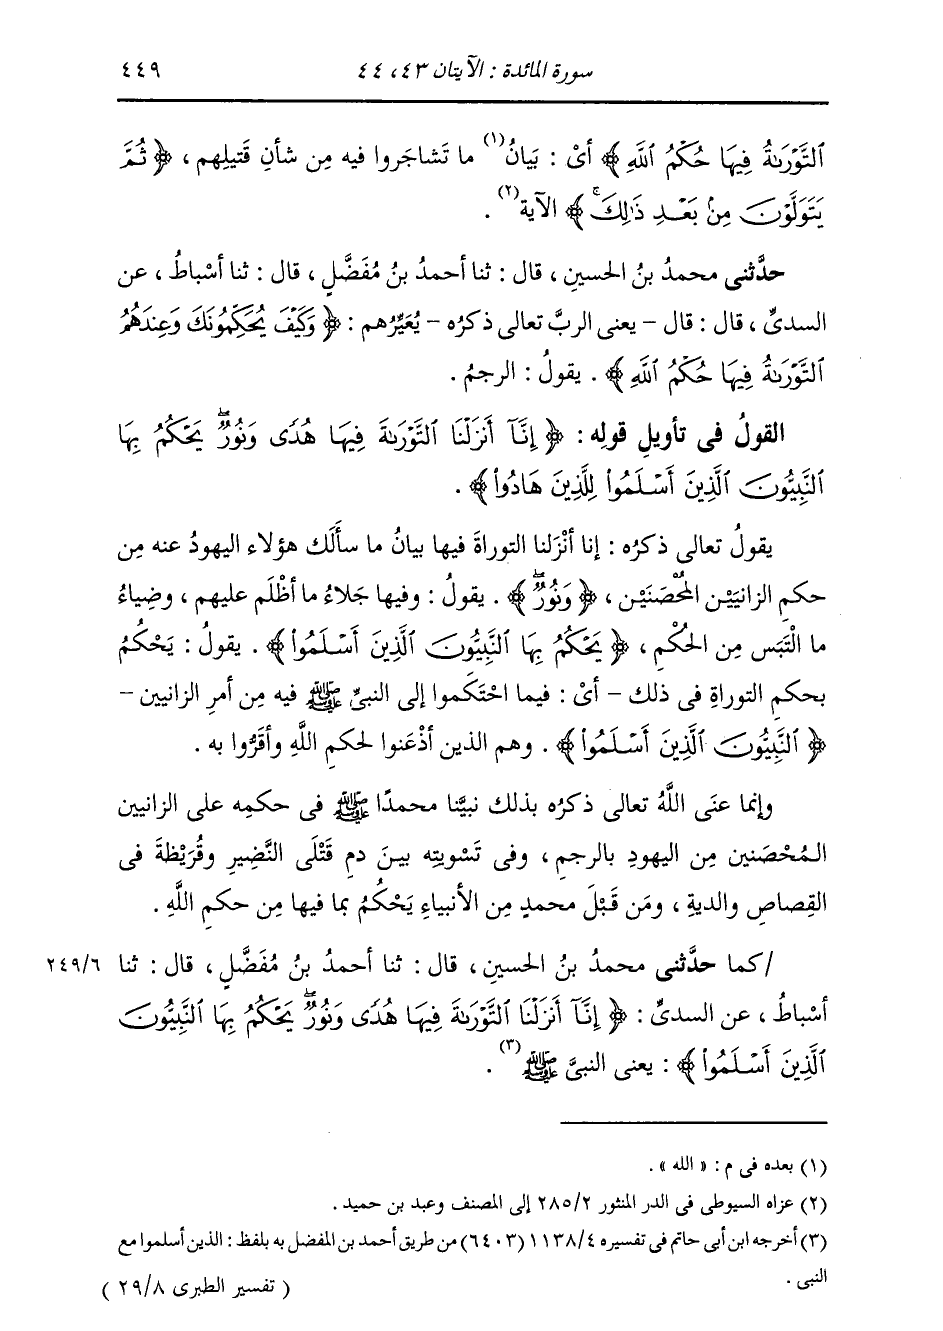 سورة المائدة : الآيتان ٤٣، ٤٤ ٤٤٩
ٱلتَّوْرَىٰةُ فِيهَا حُكْمُ ٱللَّهِ ﴾ أىْ : بَيانُ(١) ما تَشاجَروا فيه مِن شأنِ قَتيلِهم ، ﴿ ثُمَّ
يَتَوَلَّوْنَ مِنۢ بَعْدِ ذَٰلِكَۚ ﴾ الآية(٢) .
حدَّثنى محمدُ بنُ الحسينِ ، قال : ثنا أحمدُ بنُ مُفَضَّلٍ ، قال : ثنا أسْباطُ ، عن
السدىِّ ، قال : قال – يعنى الربَّ تعالى ذكرُه – يُعَيِّرُهم : ﴿ وَكَيْفَ يُحَكِّمُونَكَ وَعِندَهُمُ
ٱلتَّوْرَىٰةُ فِيهَا حُكْمُ ٱللَّهِ ﴾ . يقولُ : الرجمُ .
القولُ فى تأويلِ قولِه : ﴿ إِنَّآ أَنزَلْنَا ٱلتَّوْرَىٰةَ فِيهَا هُدًى وَنُورٌۖ يَحْكُمُ بِهَا
ٱلنَّبِيُّونَ ٱلَّذِينَ أَسْلَمُوا۟ لِلَّذِينَ هَادُوا۟ ﴾ .
يقولُ تعالى ذكرُه : إنا أنْزَلنا التوراةَ فيها بيانُ ما سأَلَك هؤلاء اليهودُ عنه مِن
حكمِ الزانيَيْن المُحْصَنَيْن ، ﴿ وَنُورٌۖ ﴾ . يقولُ : وفيها جَلاءُ ما أظْلَم عليهم ، وضِياءُ
ما الْتَبَس مِن الحُكْمِ ، ﴿ يَحْكُمُ بِهَا ٱلنَّبِيُّونَ ٱلَّذِينَ أَسْلَمُوا۟ ﴾ . يقولُ : يَحْكُمُ
بحكمِ التوراةِ فى ذلك – أىْ : فيما احْتَكَموا إلى النبىِّ ﷺ فيه مِن أمرِ الزانيين –
﴿ ٱلنَّبِيُّونَ ٱلَّذِينَ أَسْلَمُوا۟ ﴾ . وهم الذين أذْعَنوا لحكمِ اللَّهِ وأقَرُّوا به .
وإنما عنَى اللَّهُ تعالى ذكرُه بذلك نبيَّنا محمدًا ﷺ فى حكمِه على الزانيين
المُحْصَنين مِن اليهودِ بالرجمِ ، وفى تَسْويتِه بينَ دمِ قَتْلَى النَّضِيرِ وقُرَيْظةَ فى
القِصاصِ والديةِ ، ومَن قَبْلَ محمدٍ مِن الأنبياءِ يَحْكُمُ بما فيها مِن حكمِ اللَّهِ .
/كما حدَّثنى محمدُ بنُ الحسينِ ، قال : ثنا أحمدُ بنُ مُفَضَّلٍ ، قال : ثنا ٢٤٩/٦
أسْباطُ ، عن السدىِّ : ﴿ إِنَّآ أَنزَلْنَا ٱلتَّوْرَىٰةَ فِيهَا هُدًى وَنُورٌۖ يَحْكُمُ بِهَا ٱلنَّبِيُّونَ
ٱلَّذِينَ أَسْلَمُوا۟ ﴾ : يعنى النبىَّ ﷺ(٣) .
(١) بعده فى م : « الله » .
(٢) عزاه السيوطى فى الدر المنثور ٢٨٥/٢ إلى المصنف وعبد بن حميد .
(٣) أخرجه ابن أبى حاتم فى تفسيره ١١٣٨/٤ (٦٤٠٣) من طريق أحمد بن المفضل به بلفظ : الذين أسلموا مع
النبى .
( تفسير الطبرى ٢٩/٨ )